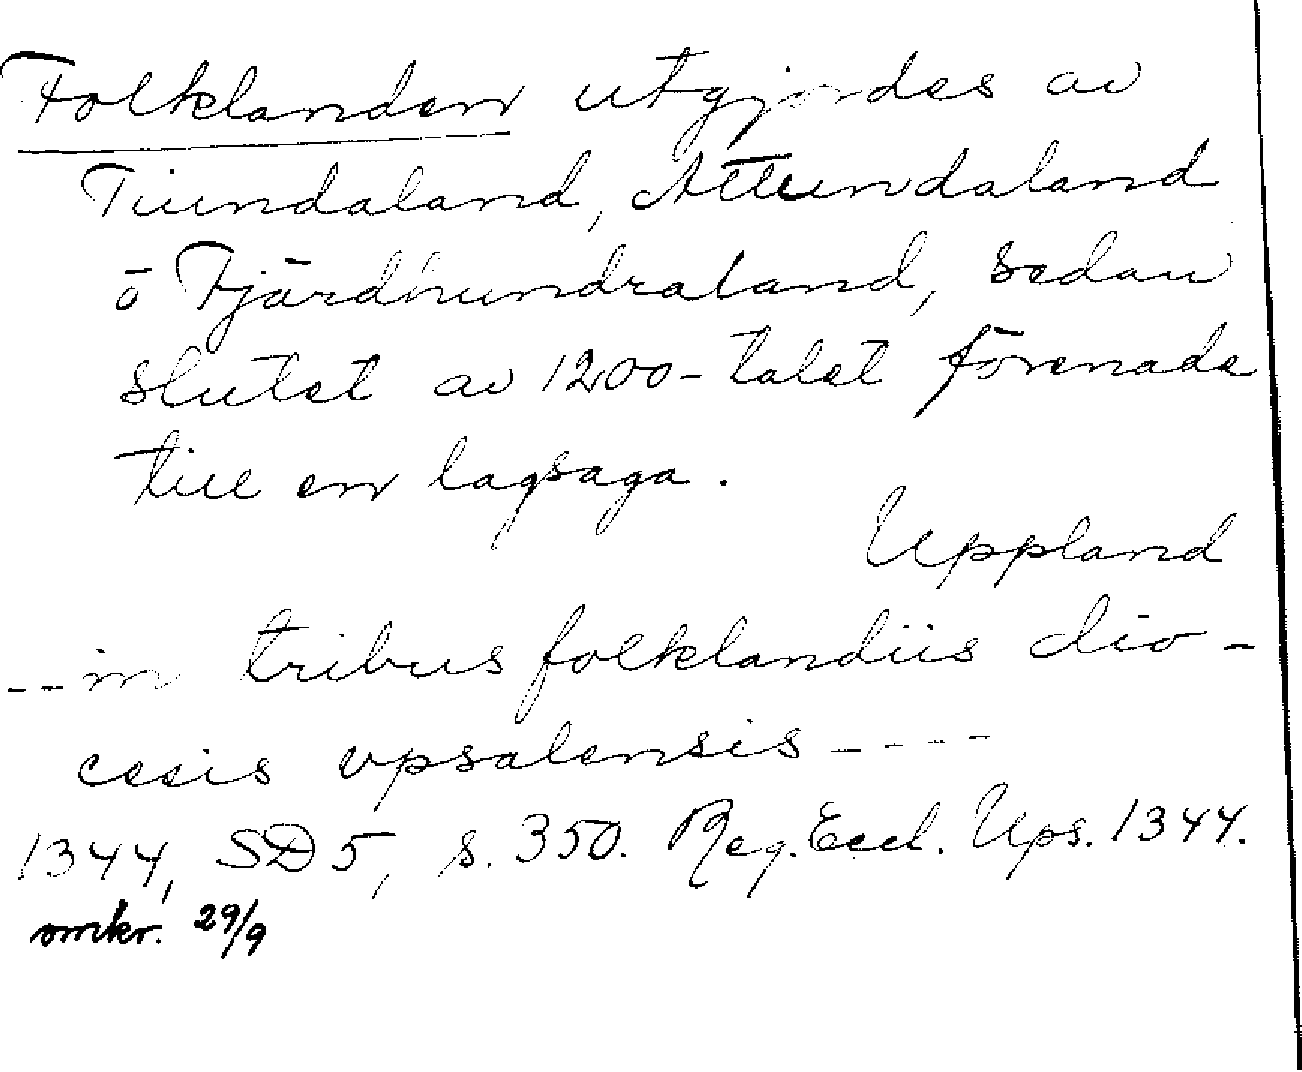 Folklanden utgjordes av
Tiundaland, Attundaland
ō Fjärdhundraland, sedan
slutet av 1200-talet förenade
till en lagsaga.
Uppland
--in tribus folklandiis dio-
cesis vpsalensis----
1344, SD 5, s. 350. Reg. Eccl. Ups. 1344.
omkr. 29/9